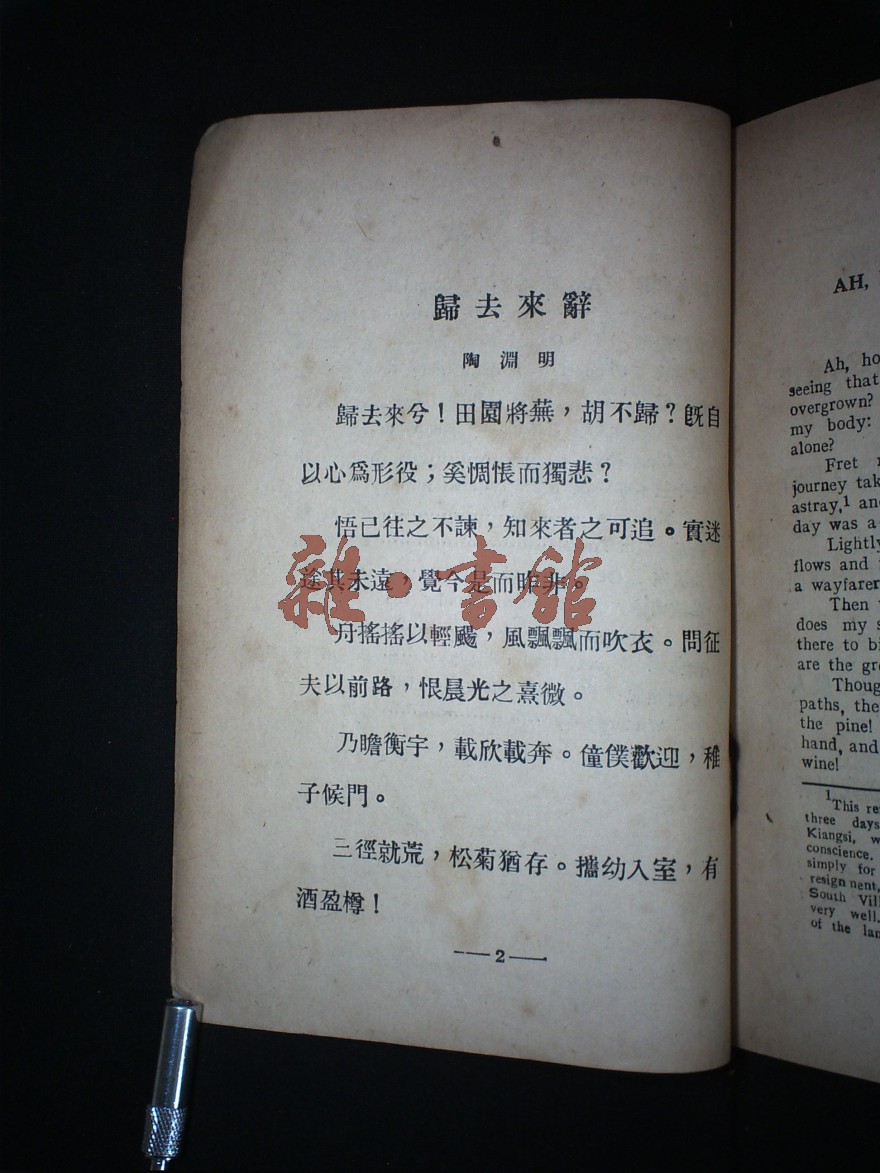 歸去來辭
陶淵明
歸去來兮！田園將蕪，胡不歸？旣自
以心爲形役；奚惆悵而獨悲？
悟已往之不諫，知來者之可追。實迷
途其未遠，覺今是而昨非。
舟搖搖以輕颺，風飄飄而吹衣。問征
夫以前路，恨晨光之熹微。
乃瞻衡宇，載欣載奔。僮僕歡迎，稚
子候門。
三徑就荒，松菊猶存。攜幼入室，有
酒盈樽！
2
雜·書館
AH,
Ah,
seeing that
overgrown?
my body:
alone?
Fret
journey
astray,1
day was a
Lightly
flows and
a wayfarer
Then
does my
there to
are the
paths, the
the pine!
hand, and
wine!
1This
three days
Kiangsi,
conscience.
simply for
South
very well.
of the